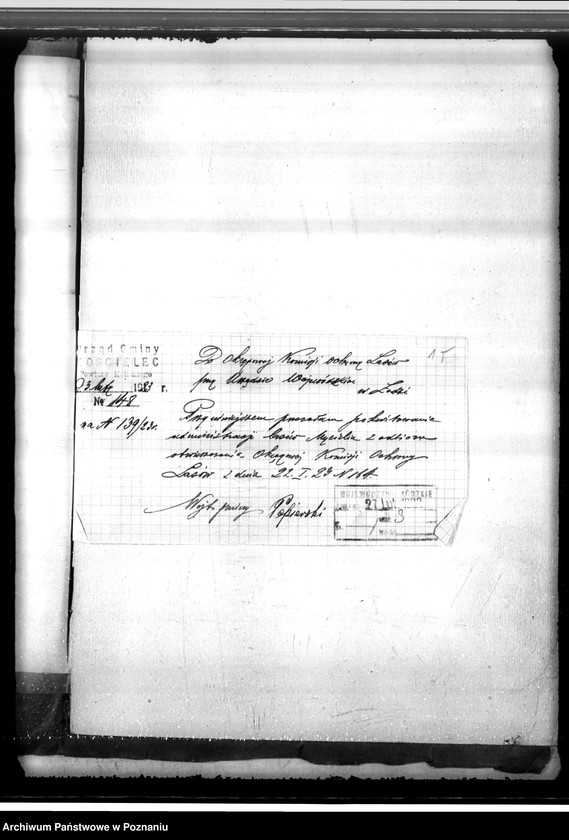 Urząd Gminy
KOŚCIELEC
Powiatu Kolskiego
23 lutego 1923 r.
№ 148
na № 139/23r.
15
Do Okręgowej Komisji Ochrony Lasów
przy Urzędzie Wojewódzkim
w Łodzi
Przy niniejszem przesyłam pokwitowanie
administracji lasów z odbioru
obwieszczenia Okręgowej Komisji Ochrony
Lasów z dnia 22.I.23 № 164
Wójt gminy
WOJEWÓDZTWO ŁÓDZKIE
27 LUT
Archiwum Państwowe w Poznaniu